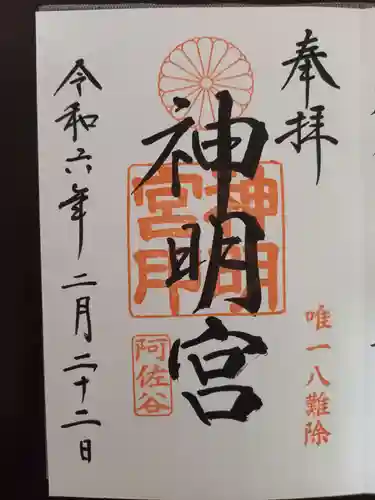 奉拝
唯一八難除
神明宮
神明宮印
阿佐谷
令和六年二月二十二日